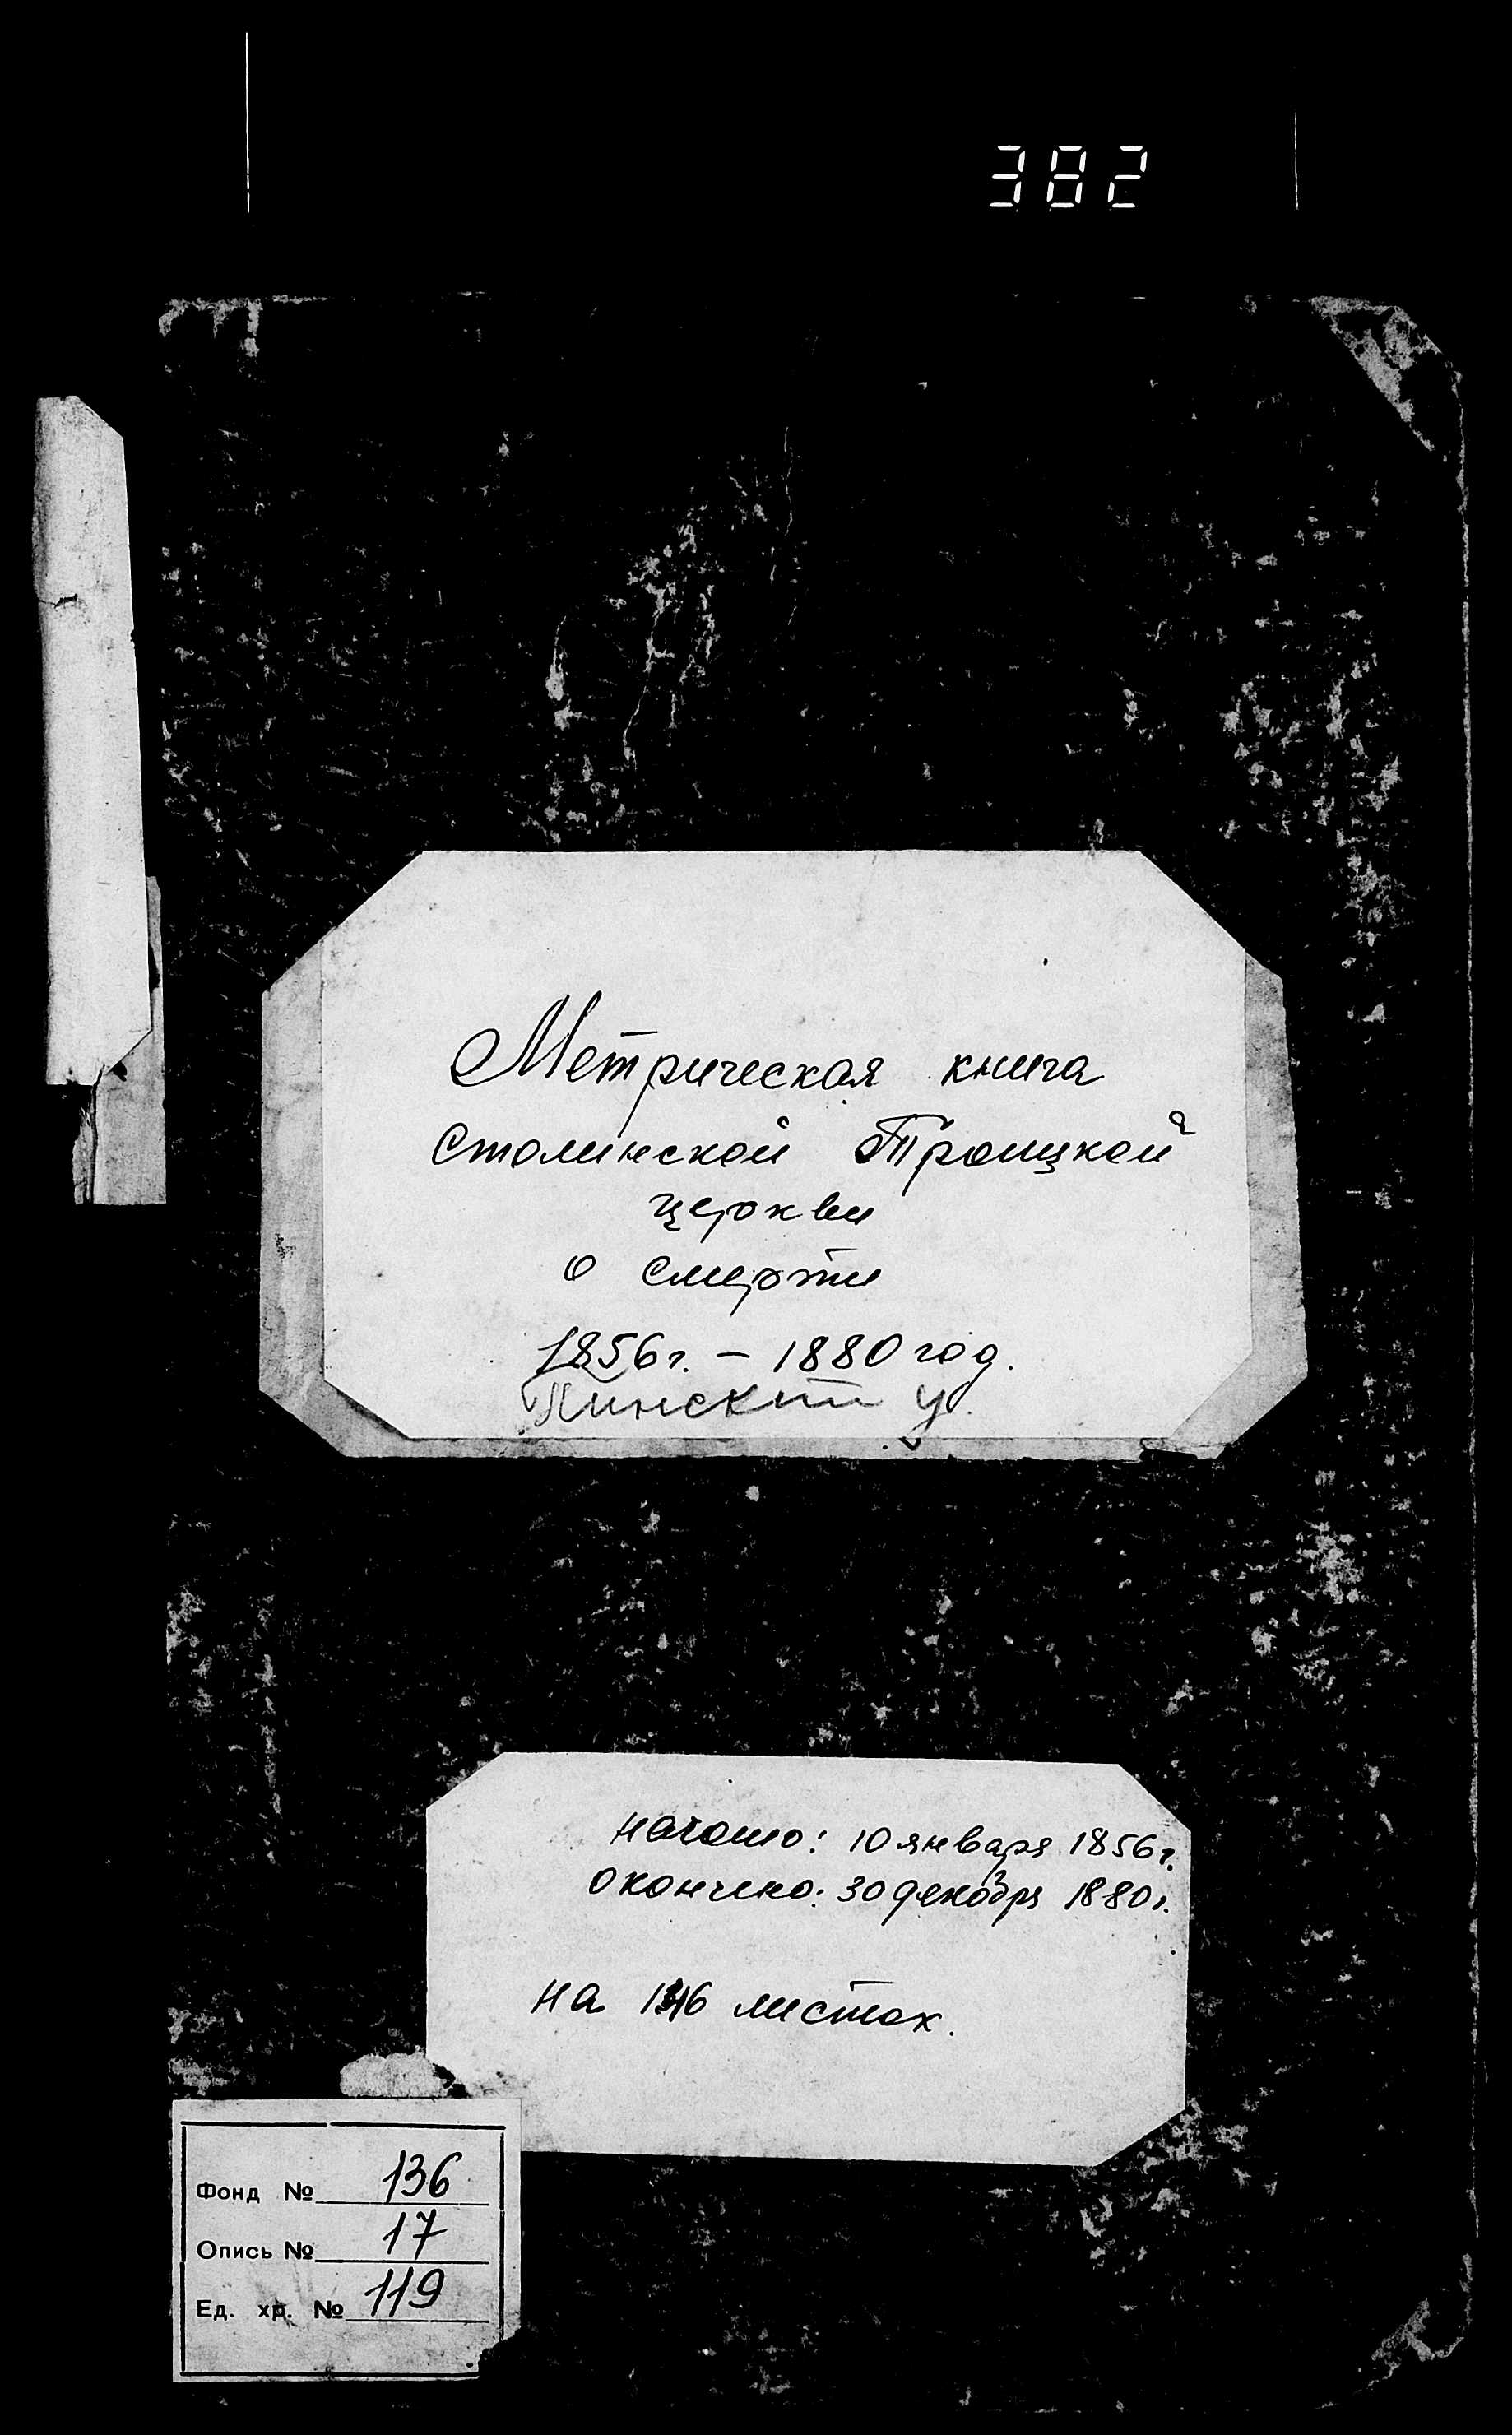 382
Метрическая книга
Столинской Троицкой
церкви
о смерти
1856г. – 1880 год.
Пинский у.
начато: 10 января 1856г.
окончено: 30 декабря 1880г.
на листах.
Фонд № 136
Опись № 17
Ед. хр. № 119